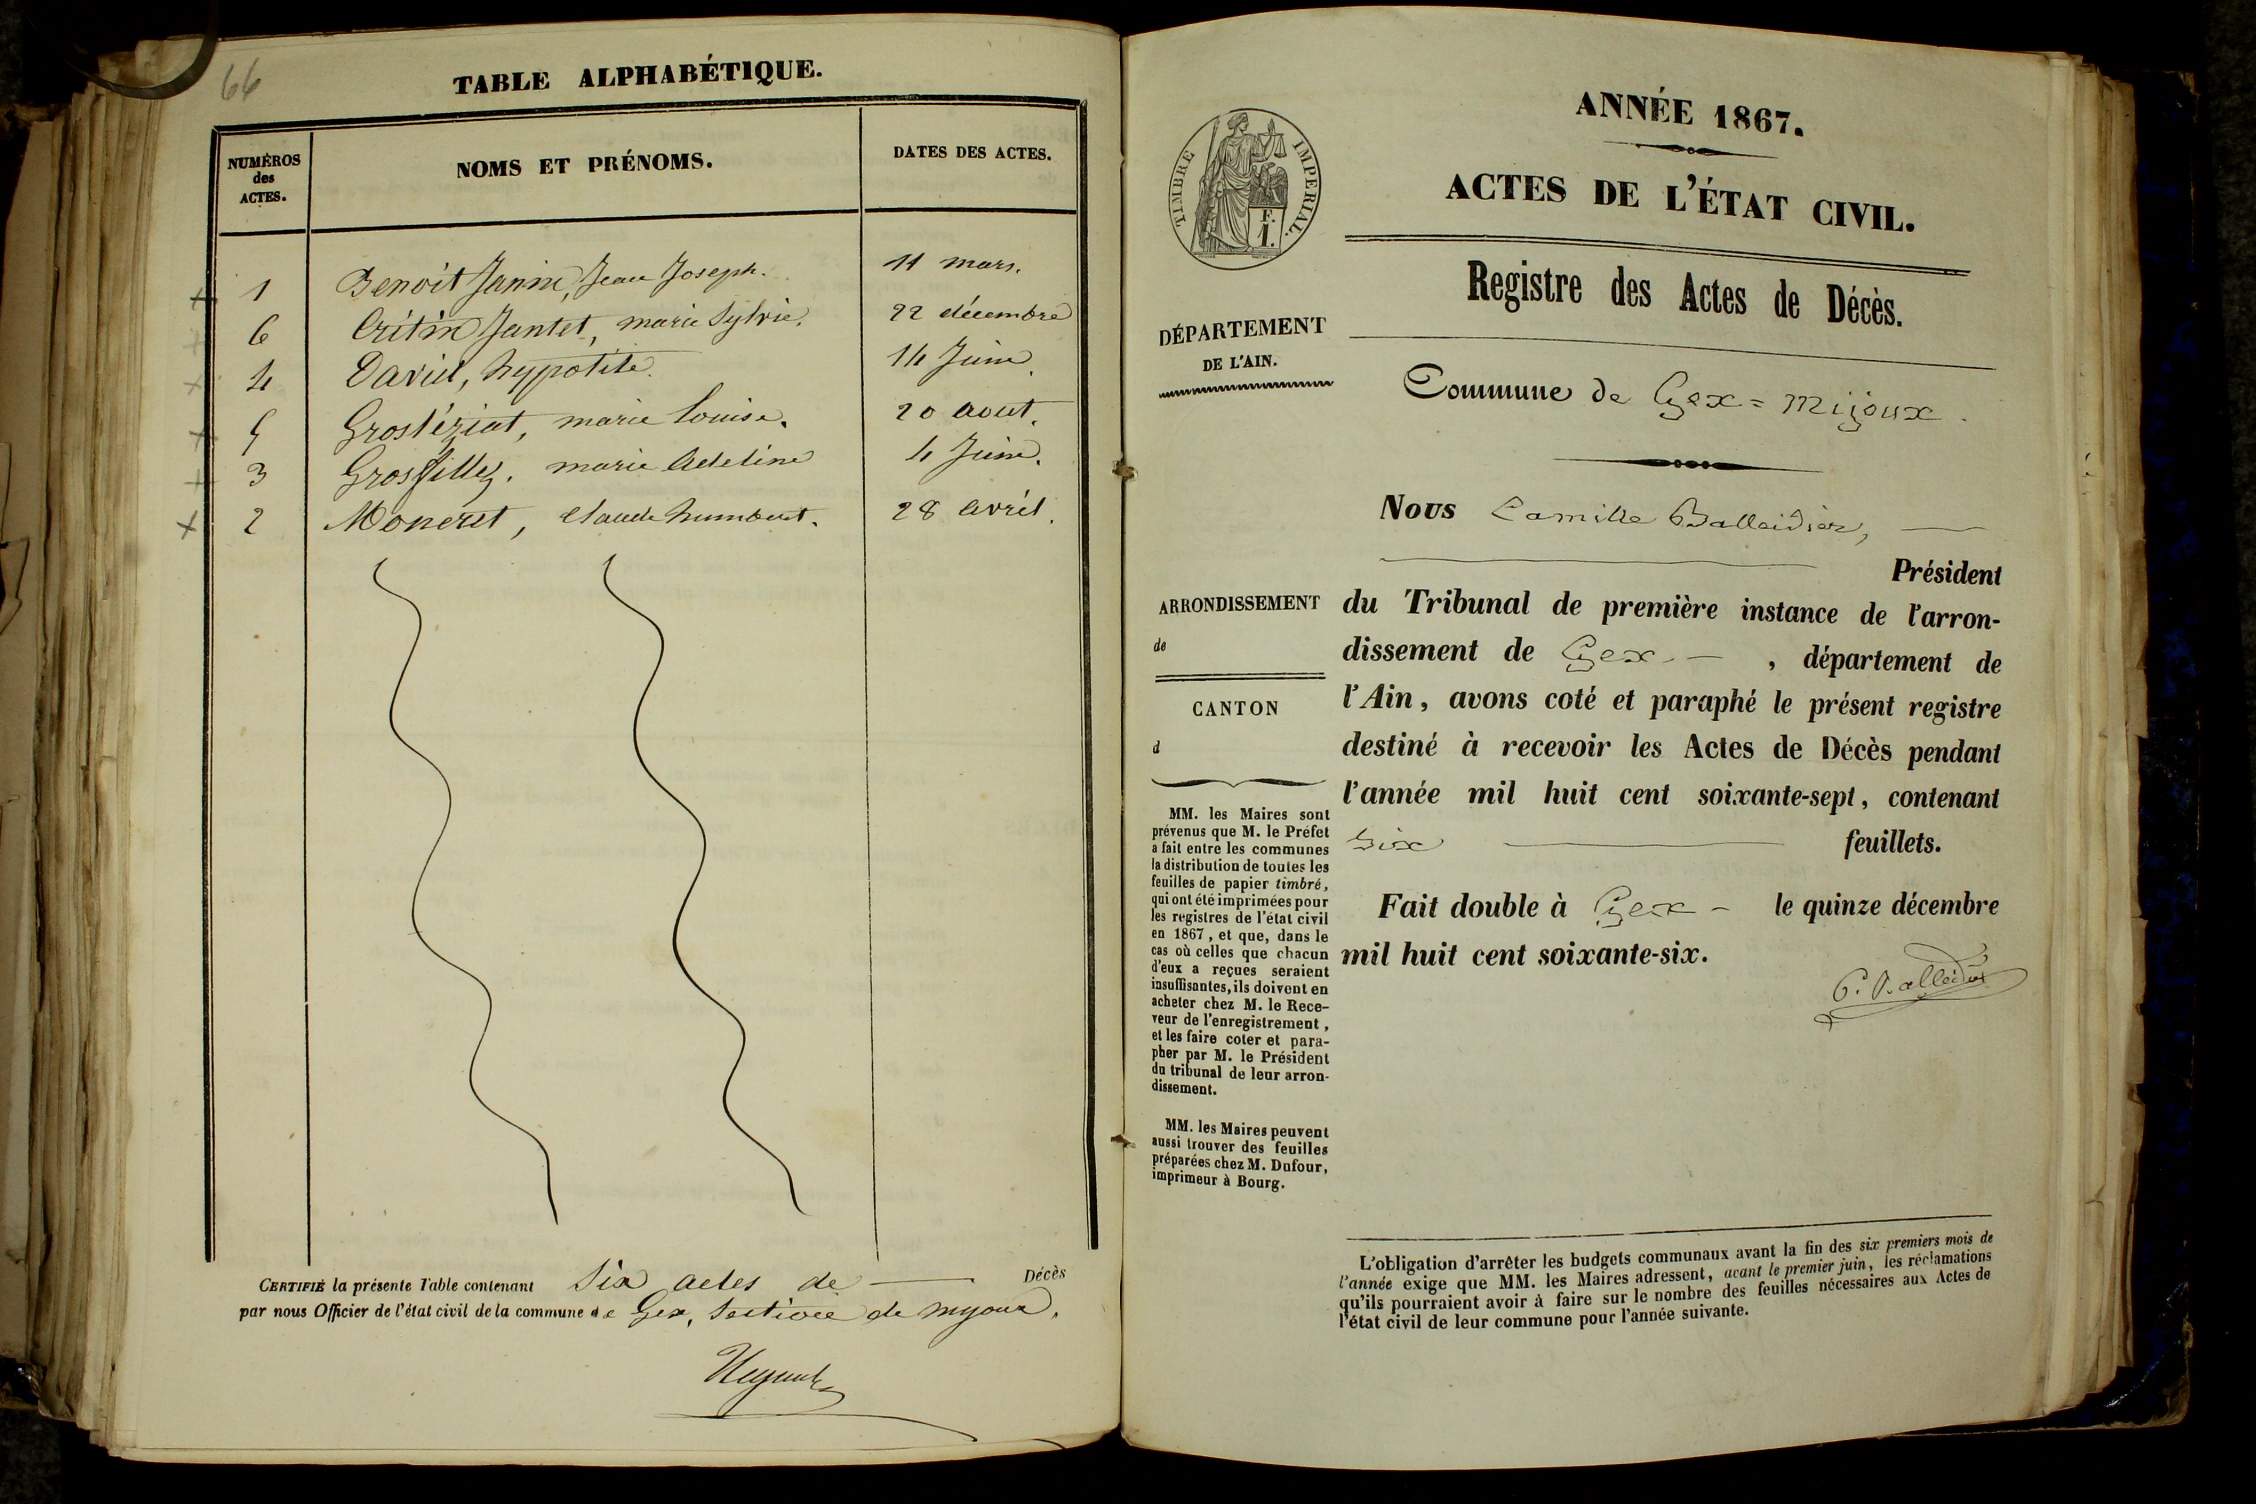 66
TABLE ALPHABÉTIQUE.
NUMÉROS
des
ACTES.
NOMS ET PRÉNOMS.
DATES DES ACTES.
1 Benoit Janin, Jean Joseph. 11 mars.
6 Critin Jantet, marie Sylvie. 22 décembre
4 David, hypolite. 14 Juin.
5 Grostéziat, marie Louise. 20 aout.
3 Grosfilley. marie Adeline 4 Juin.
2 Moneret, claude humbert. 28 avril.
CERTIFIÉ la présente Table contenant Six actes de Décès
par nous Officier de l'état civil de la commune de Gex, Section de myoux.
ANNÉE 1867.
ACTES DE L'ÉTAT CIVIL.
TIMBRE IMPERIAL.
F.
1.
Registre des Actes de Décès.
DÉPARTEMENT
DE L'AIN.
Commune de Gex = Mijoux.
Nous Camille Balleidier,
Président
ARRONDISSEMENT
de
CANTON
d
du Tribunal de première instance de l'arron-
dissement de Gex - , département de
l'Ain, avons coté et paraphé le présent registre
destiné à recevoir les Actes de Décès pendant
l'année mil huit cent soixante-sept, contenant
Six feuillets.
Fait double à Gex - le quinze décembre
mil huit cent soixante-six.
C. Balleidier
MM. les Maires sont
prévenus que M. le Préfet
a fait entre les communes
la distribution de toutes les
feuilles de papier timbré,
qui ont été imprimées pour
les registres de l'état civil
en 1867, et que, dans le
cas où celles que chacun
d'eux a reçues seraient
insuffisantes, ils doivent en
acheter chez M. le Rece-
veur de l'enregistrement,
et les faire coter et para-
pher par M. le Président
du tribunal de leur arron-
dissement.
MM. les Maires peuvent
aussi trouver des feuilles
préparées chez M. Dufour,
imprimeur à Bourg.
L'obligation d'arrêter les budgets communaux avant la fin des six premiers mois de
l'année exige que MM. les Maires adressent, avant le premier juin, les réclamations
qu'ils pourraient avoir à faire sur le nombre des feuilles nécessaires aux Actes de
l'état civil de leur commune pour l'année suivante.